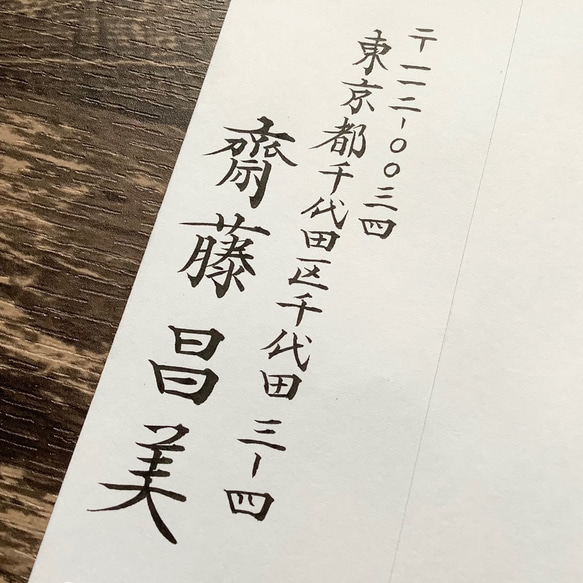 〒一一二-００三四
東京都千代田区千代田 三-四
齋藤昌美